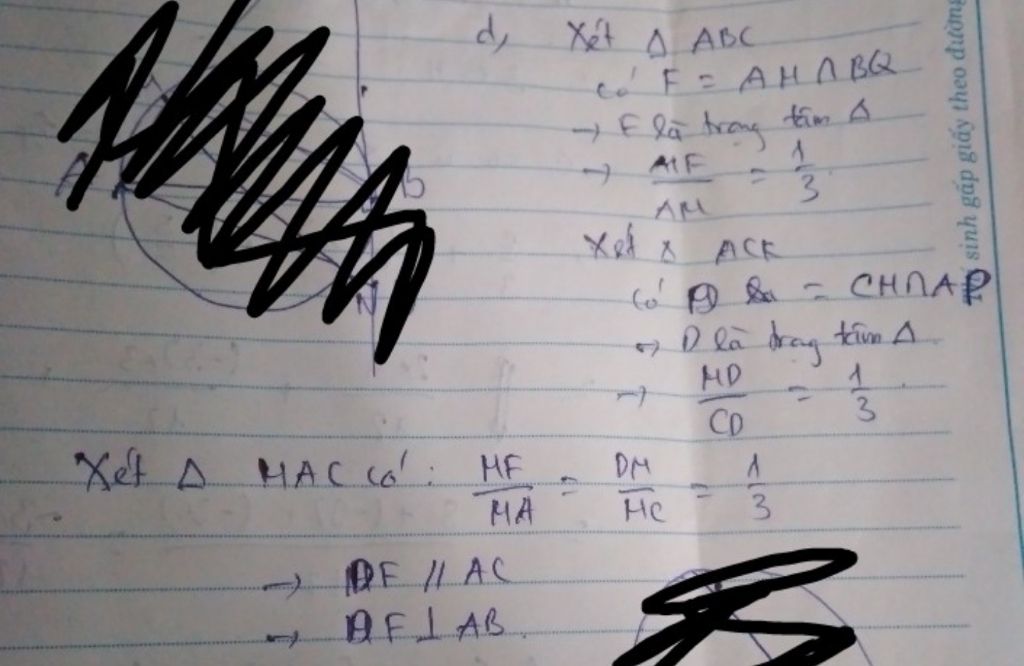 d, Xét Δ ABC
có F = AM ∩ BQ
→ F là trọng tâm Δ
→ MF/AM = 1/3
A B
N
Xét Δ ACK
có D = CM ∩ AD
→ D là trọng tâm Δ
→ MD/CD = 1/3
Xét Δ MAC có: MF/MA = DM/MC = 1/3
→ DF // AC
→ DF ⊥ AB
sinh gấp giấy theo đường